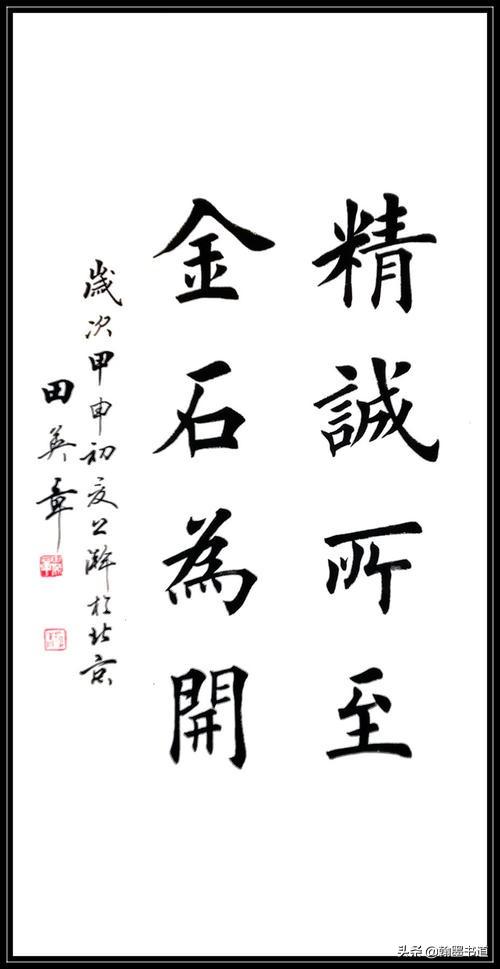 精誠所至
金石為開
歲次甲申初夏公澣於北京
田英章
头条 @翰墨书道